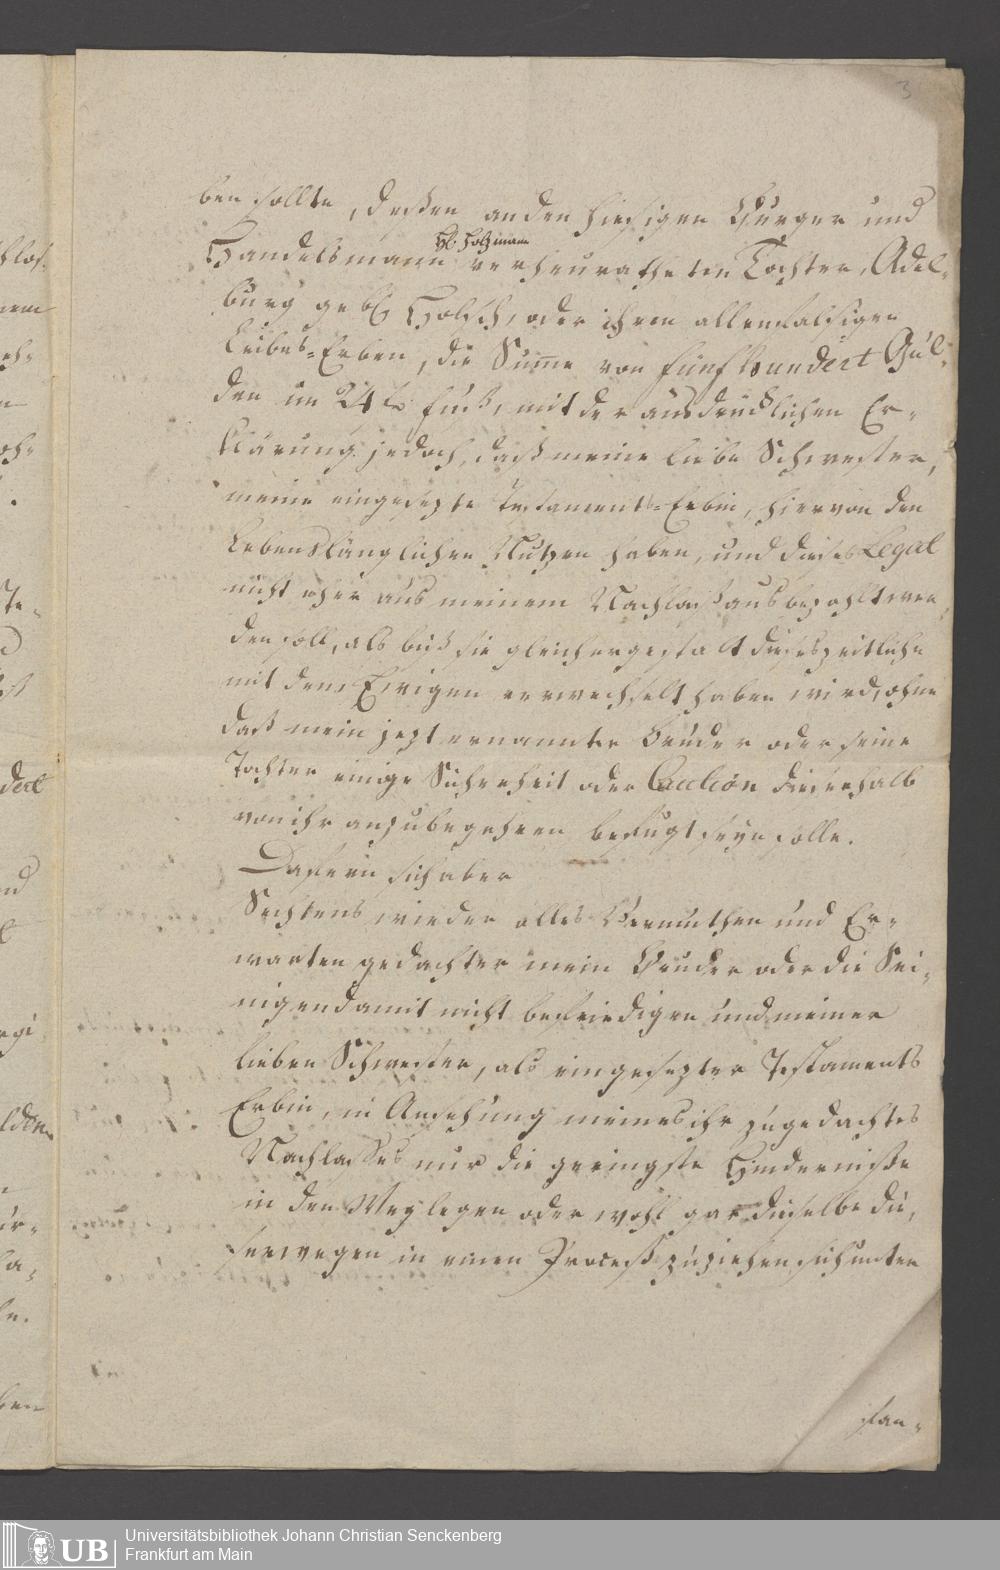 3
ben sollte, deßen an den hiesigen Burger und
Hl. Holzmann
Handelsmann verheuratheten Tochter, Adel-
burg geb. Holsch, oder ihren allenfalsigen
Leibes-Erben, die Sume von fünf hundert Gul-
den im 24 fl. Fuß, mit der ausdrücklichen Er-
klärung jedoch, daß meine liebe Schwester,
meine eingesezte Testaments-Erbin, hiervon den
Lebenslänglichen Nutzen haben, und dieses Legat
nicht eher aus meinem Nachlaß ausbezahlt wer-
den soll, als biß sie gleichergestalt dieses zeitliche
mit dem Ewigen verwechselt haben wird, ohne
daß mein jezt ernannter Bruder oder seine
Tochter einige Sicherheit oder Caution dieserhalb
von ihr anzubegehren befugt seyn solle.
Dafern sich aber
Sechtens wieder alles Vermuthen und Er-
warten gedachter mein Bruder oder die Sei-
nigen damit nicht befriedigen und meiner
lieben Schwester, als eingesezter Testaments
Erbin, in Ansehung meines ihr zugedachtes
Nachlasses nur die geringste Hinderniße
in den Weg legen oder wohl gar dieselbe die-
serwegen in einen Proceß zu ziehen sich unter
stan-
Universitätsbibliothek Johann Christian Senckenberg
Frankfurt am Main
UB